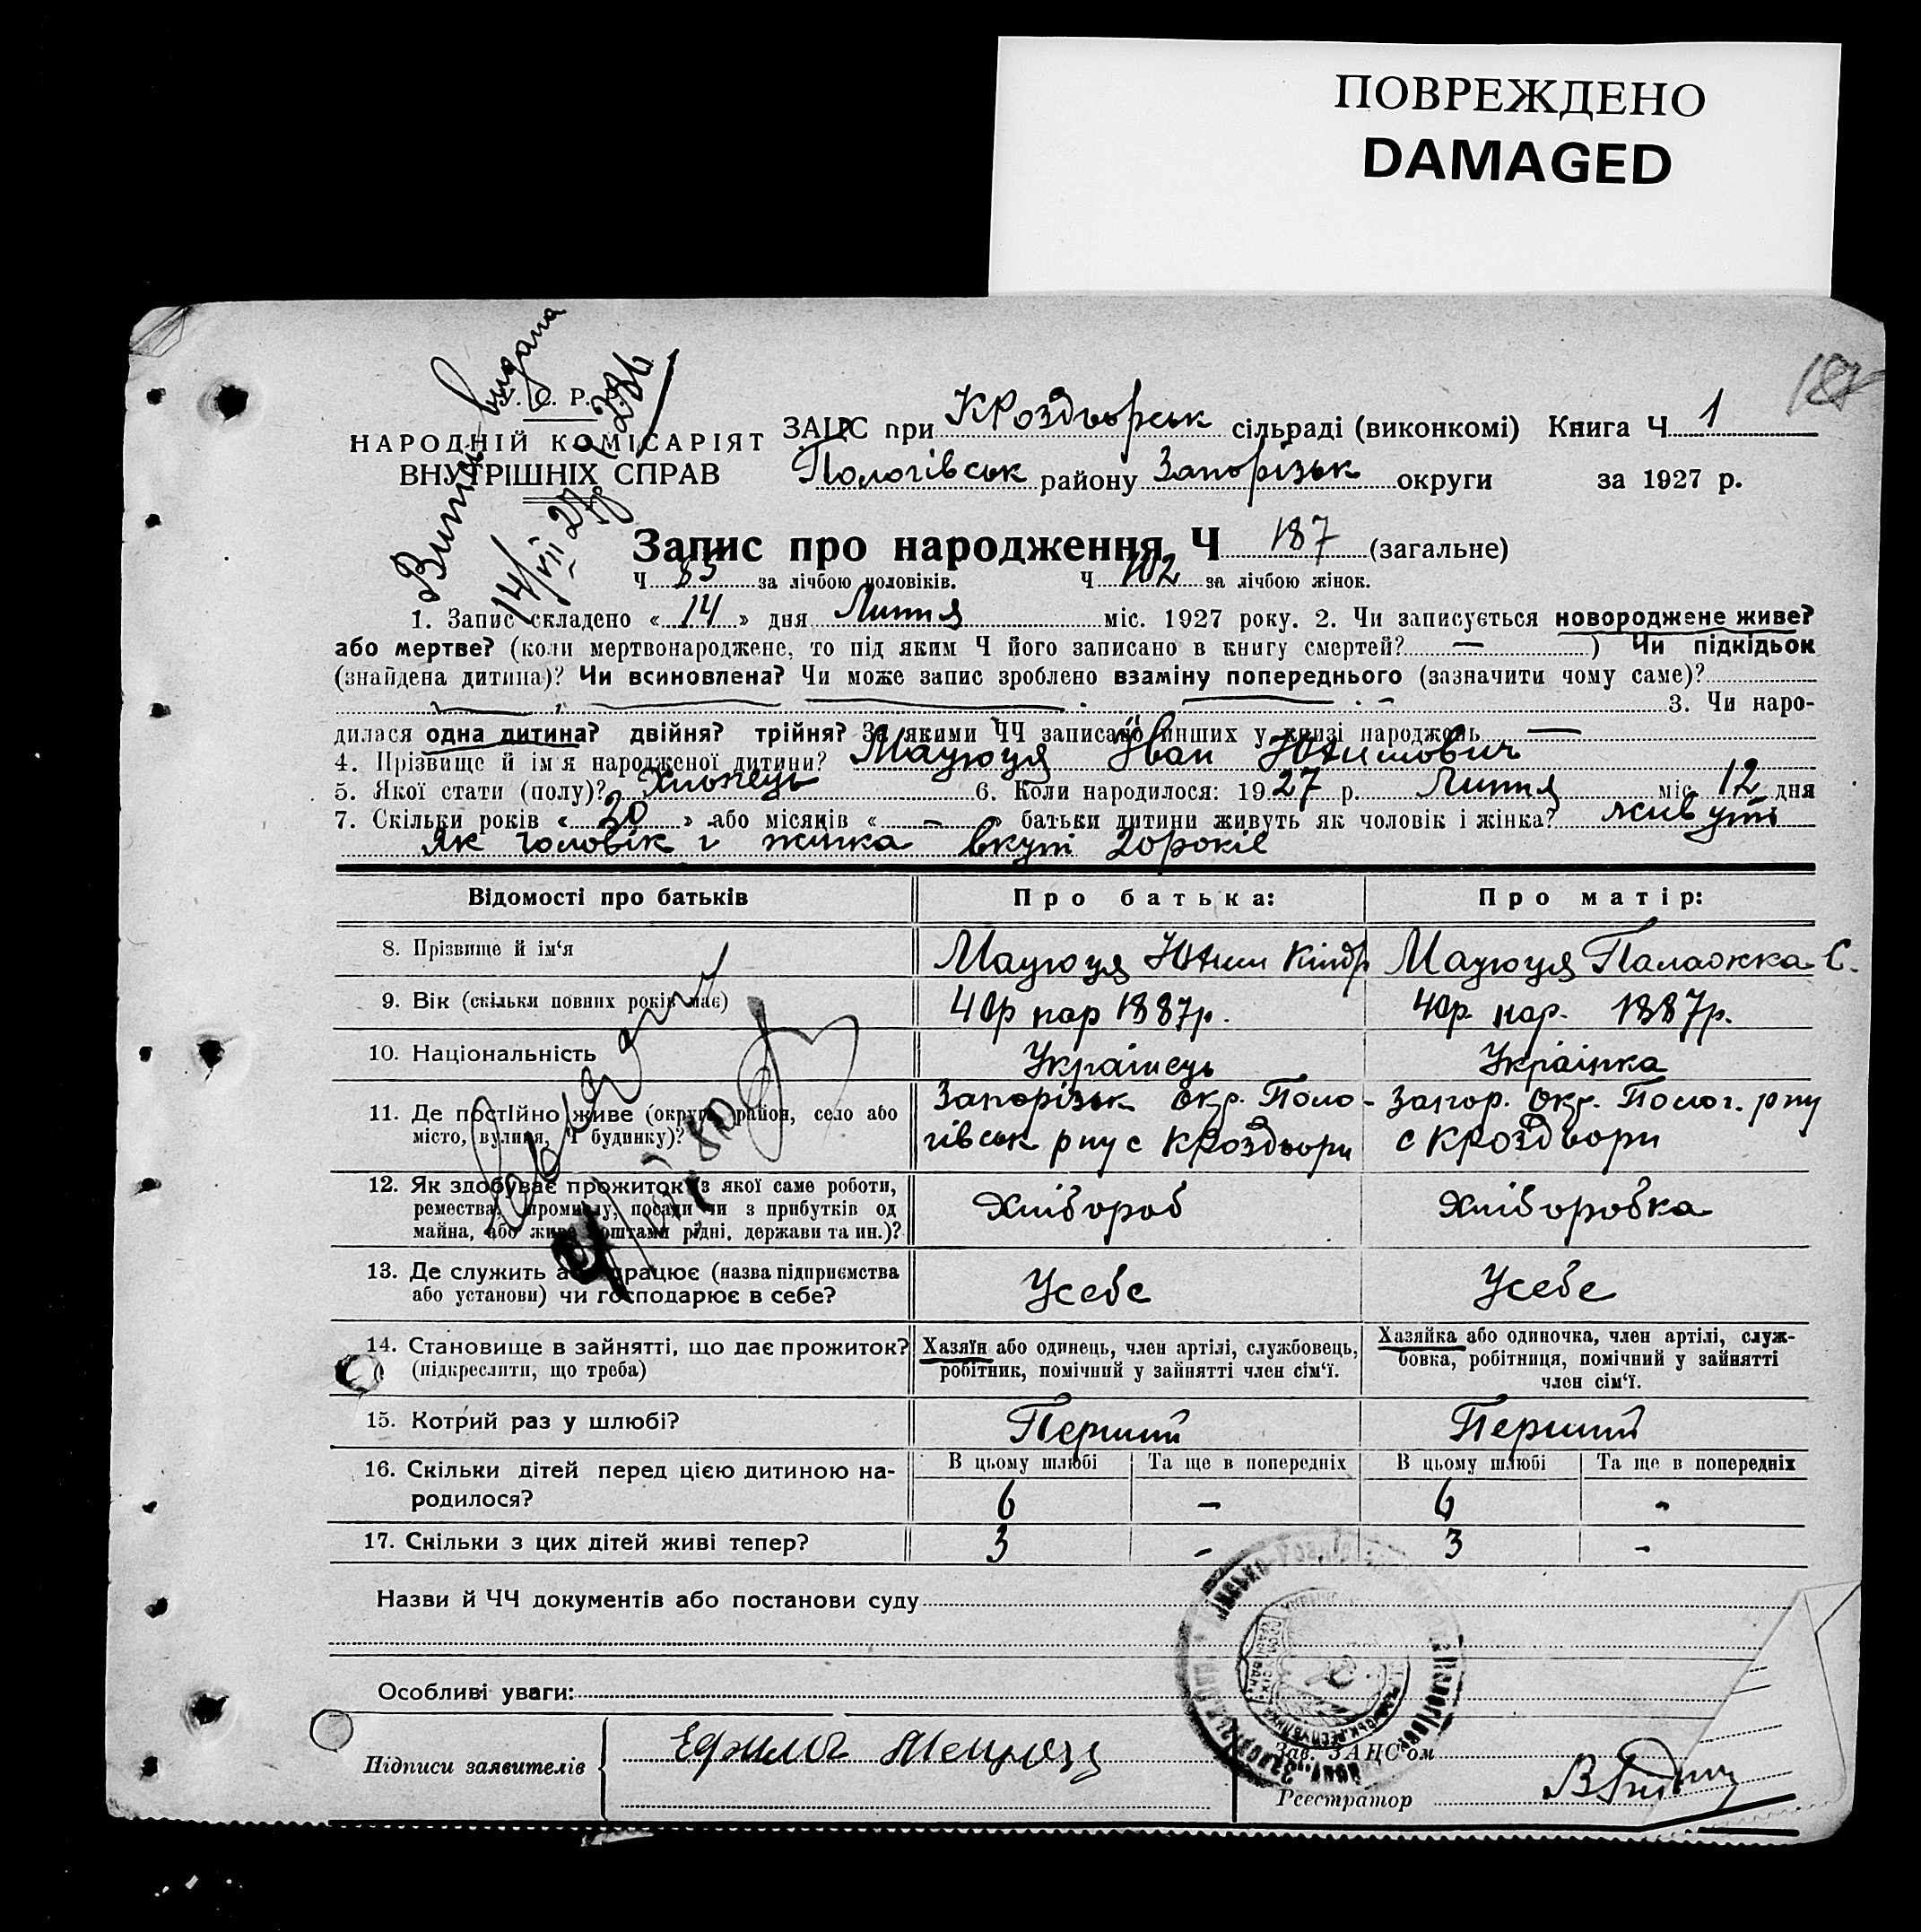 ПОВРЕЖДЕНО
DAMAGED
187
У. С. Р. Р.
НАРОДНІЙ КОМІСАРІЯТ
ВНУТРІШНІХ СПРАВ
Випись видана
14/VII 27р
ЗАЦС при КРоздворськ сільраді (виконкомі) Книга Ч 1
Пологівськ району Запорізьк округи за 1927 р.
Запис про народження Ч 187 (загальне)
Ч 85 за лічбою чоловіків. Ч 102 за лічбою жінок.
1. Запис складено « 14 » дня Липня міс. 1927 року. 2. Чи записується новороджене живе?
або мертве? (коли мертвонароджене, то під яким Ч його записано в книгу смертей? — ) Чи підкідьок
(знайдена дитина)? Чи всиновлена? Чи може запис зроблено взаміну попереднього (зазначити чому саме)?
3. Чи наро-
дилася одна дитина? двійня? трійня? За якими ЧЧ записано инших у книзі народжень —
4. Прізвище й ім'я народженої дитини? Мацюця Іван Юхимович
5. Якої стати (полу)? Хлопець 6. Коли народилося: 1927 р. Липня міс 12 дня
7. Скільки років « 20 » або місяців « — » батьки дитини живуть як чоловік і жінка? живуть
Як чоловік і жінка вкупі 20 років
Відомості про батьків Про батька: Про матір:
8. Прізвище й ім'я Мацюця Юхим Кіндр Мацюця Палажка С.
9. Вік (скільки повних років має) 40р нар 1887р. 40р. нар. 1887р.
10. Національність Українець Українка
11. Де постійно живе (округа, район, село або Запорізьк окр. Поло- Запор. Окр. Полог. р ну
місто, вулиця, Ч будинку)? гівськ р ну с КРоздвори с КРоздвори
12. Як здобуває прожиток (з якої саме роботи,
ремества, промислу, посади чи з прибутків од Хлібороб Хлiборобка
майна, або живе коштами рідні, держави та ин.)?
13. Де служить або працює (назва підприємства
або установи) чи господарює в себе? Усебе Усебе
14. Становище в зайнятті, що дає прожиток? Хазяїн або одинець, член артілі, службовець, Хазяйка або одиночка, член артілі, служ-
(підкреслити, що треба) робітник, помічний у зайнятті член сім'ї. бовка, робітниця, помічний у зайнятті
член сім'ї.
15. Котрий раз у шлюбі? Перший Перший
16. Скільки дітей перед цією дитиною на- В цьому шлюбі Та ще в попередніх В цьому шлюбі Та ще в попередніх
родилося? 6 - 6 -
17. Скільки з цих дітей живі тепер? 3 - 3 -
Назви й ЧЧ документів або постанови суду
Особливі уваги:
Підписи заявителів
Зав. ЗАЦС'ом
Реєстратор